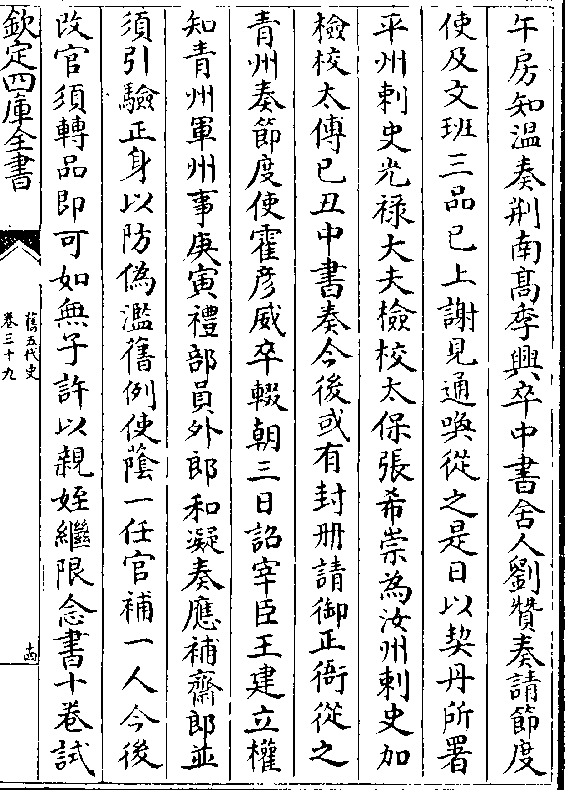 午房知溫奏荆南髙季興卒中書舍人劉贊奏請節度
使及文班三品已上謝見通喚從之是日以契丹所署
平州刺史光禄大夫檢校太保張希崇為汝州刺史加
檢校太傅已丑中書奏今後或有封册請御正衙從之
青州奏節度使霍彦威卒輟朝三日詔宰臣王建立權
知青州軍州事庚寅禮部員外郎和凝奏應補齋郎並
須引驗正身以防偽濫舊例使蔭一任官補一人今後
改官須轉品即可如無子許以親姪繼限念書十卷試
欽定四庫全書
舊五代史
卷三十九
十四